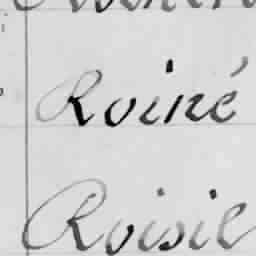 Roiné
Roisil